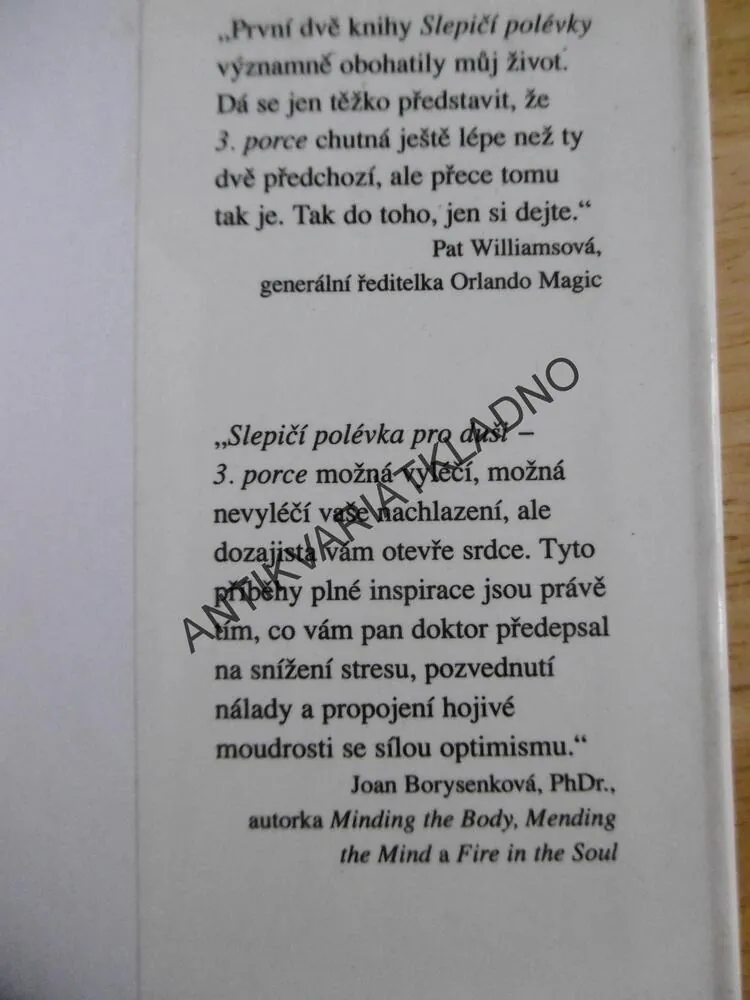 „První dvě knihy Slepičí polévky
významně obohatily můj život.
Dá se jen těžko představit, že
3. porce chutná ještě lépe než ty
dvě předchozí, ale přece tomu
tak je. Tak do toho, jen si dejte.“
Pat Williamsová,
generální ředitelka Orlando Magic
„Slepičí polévka pro duši –
3. porce možná vyléčí, možná
nevyléčí vaše nachlazení, ale
dozajista vám otevře srdce. Tyto
příběhy plné inspirace jsou právě
tím, co vám pan doktor předepsal
na snížení stresu, pozvednutí
nálady a propojení hojivé
moudrosti se sílou optimismu.“
Joan Borysenková, PhDr.,
autorka Minding the Body, Mending
the Mind a Fire in the Soul
ANTIKVARIATKLADNO